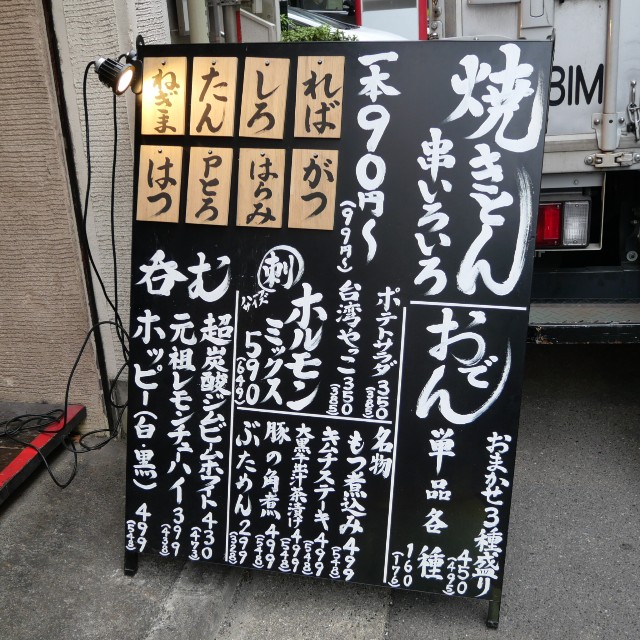 焼きとん
串いろいろ
一本90円〜
(99円)
れば
しろ
たん
ねぎま
がつ
はらみ
とろ
はつ
おでん
おまかせ3種盛り
450
(495)
単品各種
160
(176)
ポテトサラダ350
(385)
台湾やっこ350
(385)
刺
ホルモン
ミックス
590
(649)
名物
もつ煮込み499
(548)
キムチステーキ499
(548)
499
(548)
豚の角煮499
(548)
ぶためん299
(328)
呑む
超炭酸ジンビームホワイト430
(473)
元祖レモンチューハイ399
(438)
ホッピー(白黒)499
(548)
BIM